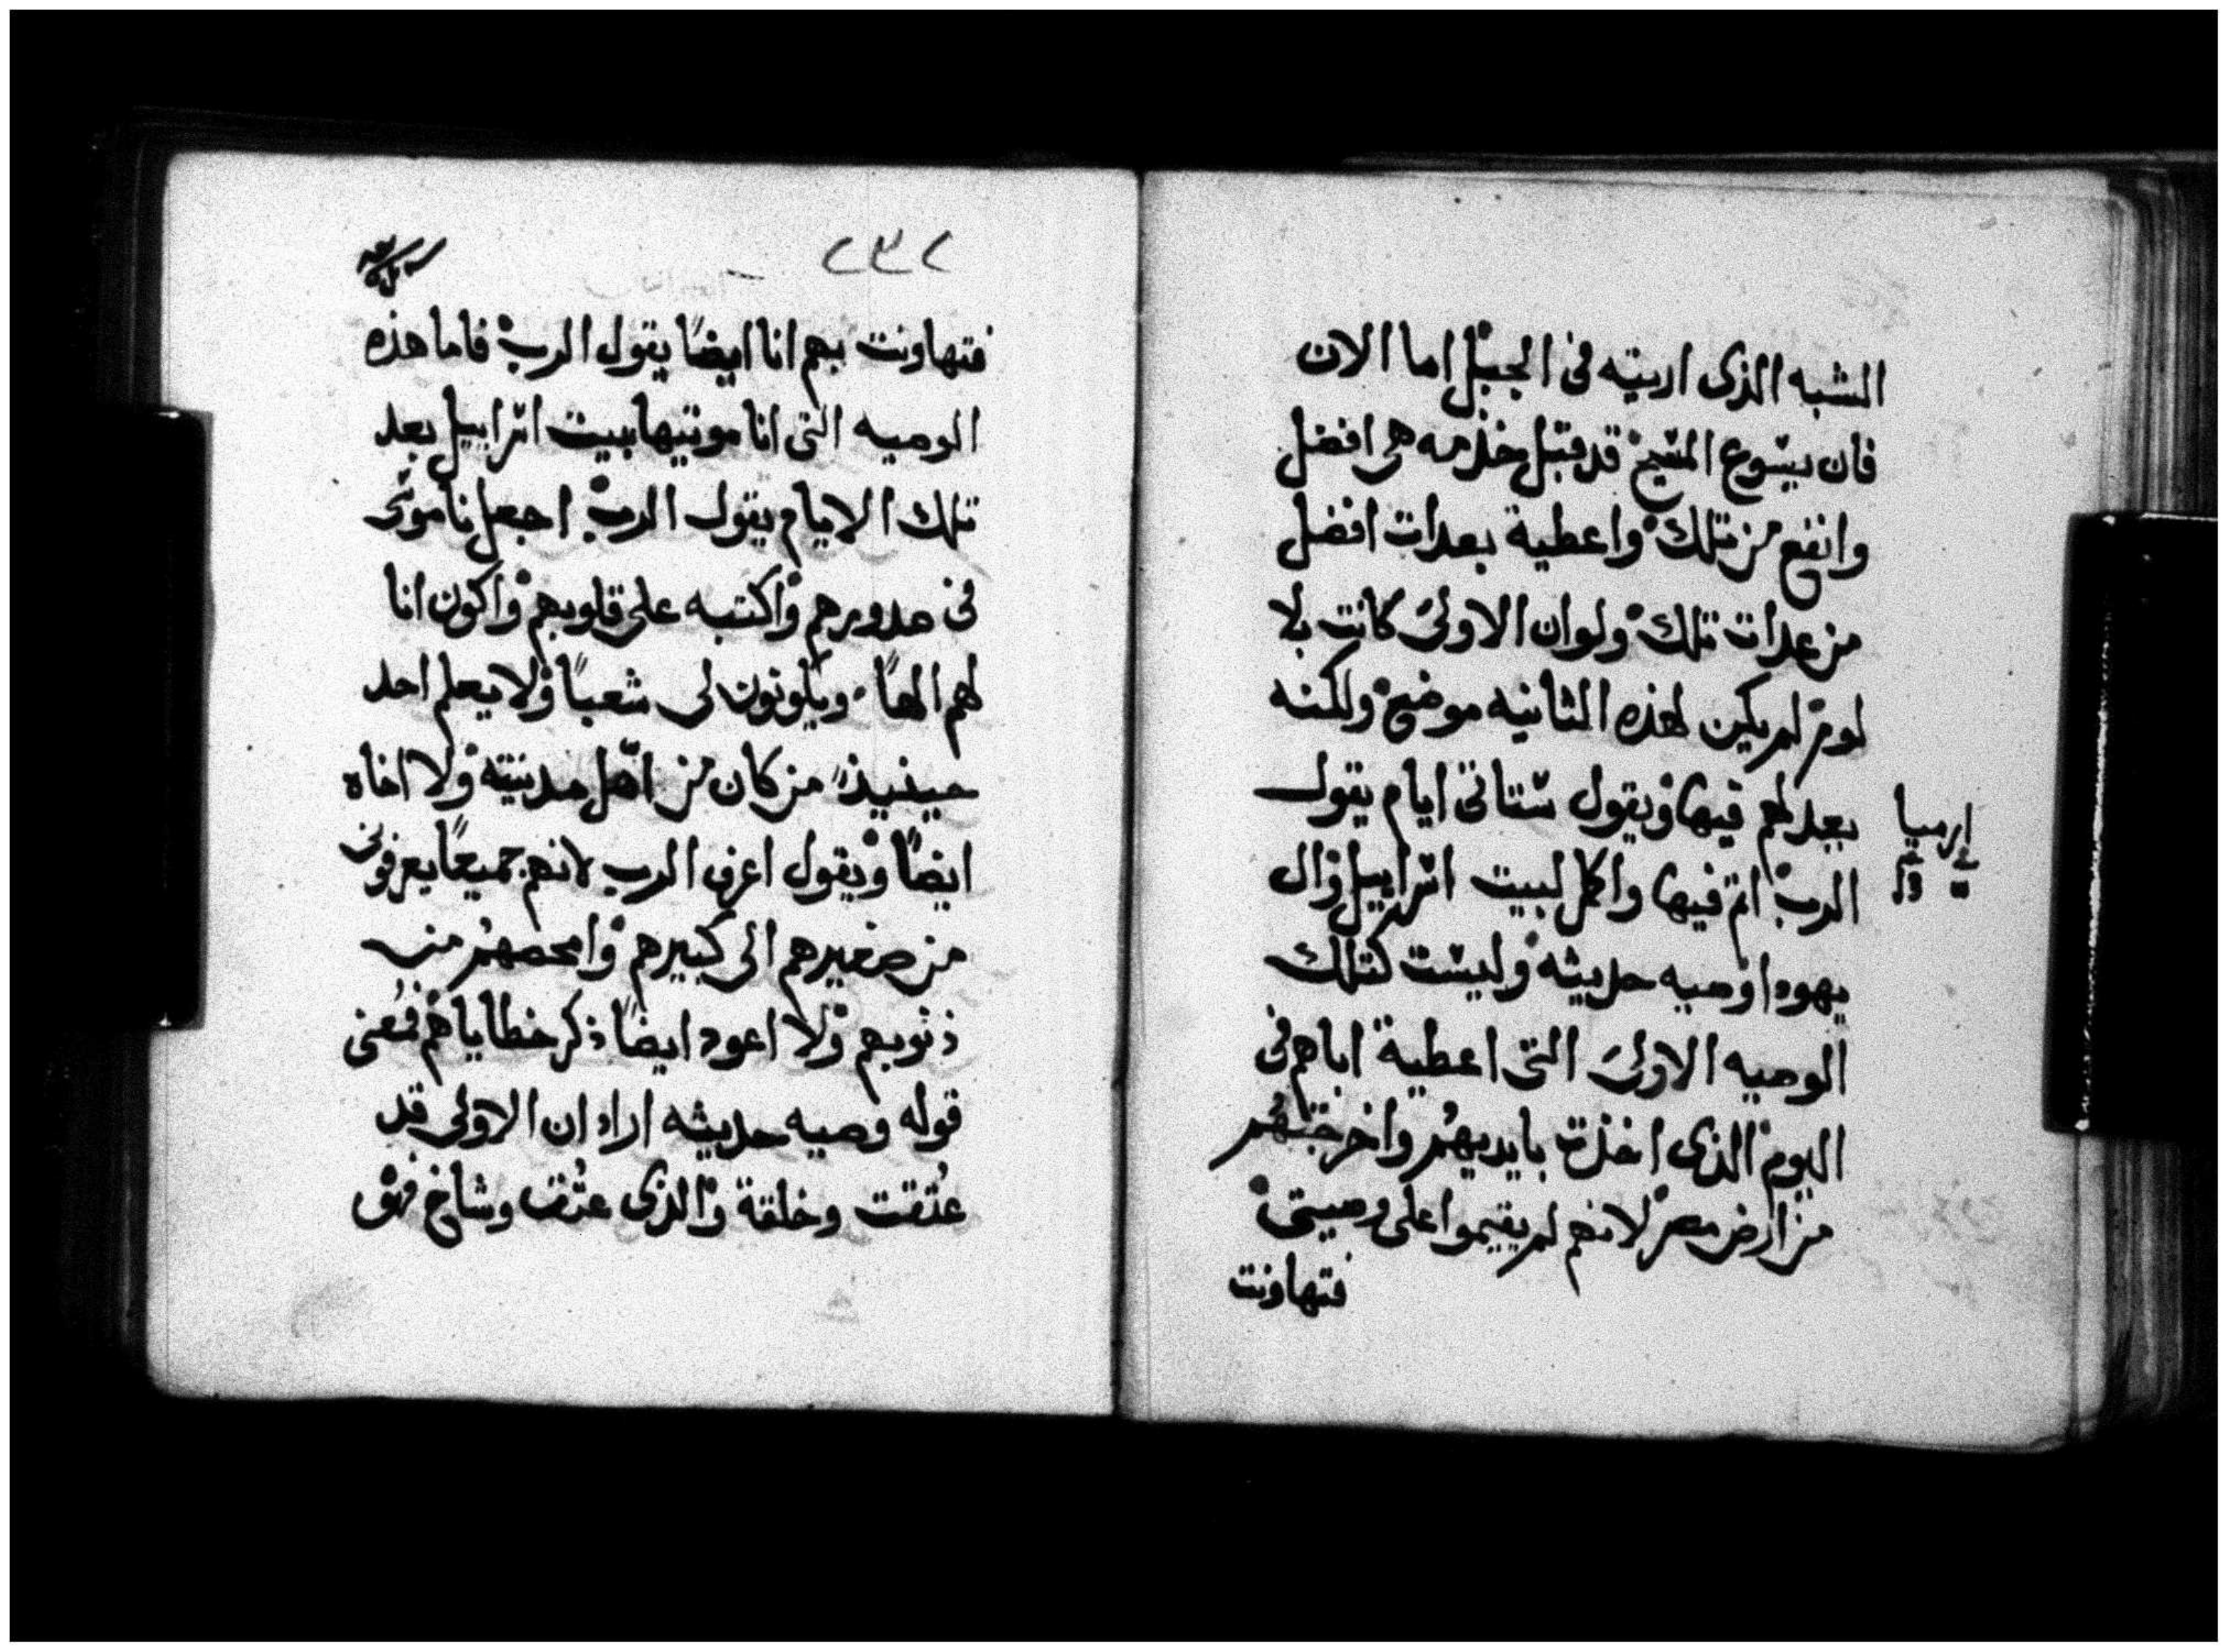 الشبه الذى اريته فى الجبل اما الان
فان يسوع المسيح قد قبل خدمه هى افضل
وانفع من تلك واعطية بعدات افضل
من عدات تلك ولوان الاولى كانت بلا
لوم لم يكن لهذه الثانيه موضع ولكنه
بعد لهم فيها ويقول ستاتى ايام يقول
الرب اتم فيها واكمل لبيت اسراييل وال
يهودا وصيه حديثه وليست كتلك
الوصيه الاولى التى اعطية اباهم فى
اليوم الذى اخذت بايديهم واخرجتهم
من ارض مصر لانهم لم يقيموا على وصيتى
فتهاونت
ارميا
٢٣٢
فتهاونت بهم انا ايضًا يقول الرب فاما هذه
الوصيه التى انا موتيها بيت اسراييل بعد
تلك الايام يقول الرب اجعل ناموسى
فى صدورهم واكتبه على قلوبهم واكون انا
لهم الهًا ويكونون لى شعبًا ولا يعلم احد
حينيذ من كان من اهل مدينته ولا اخاه
ايضًا ويقول اعرف الرب لانهم جميعًا يعرفونى
من صغيرهم الى كبيرهم وامحصهم من
ذنوبهم ولا اعود ايضًا ذكر خطاياهم فمعنى
قوله وصيه حديثه اراد ان الاولى قد
عُتقت وخلقة والذى عتق وشاخ فهو